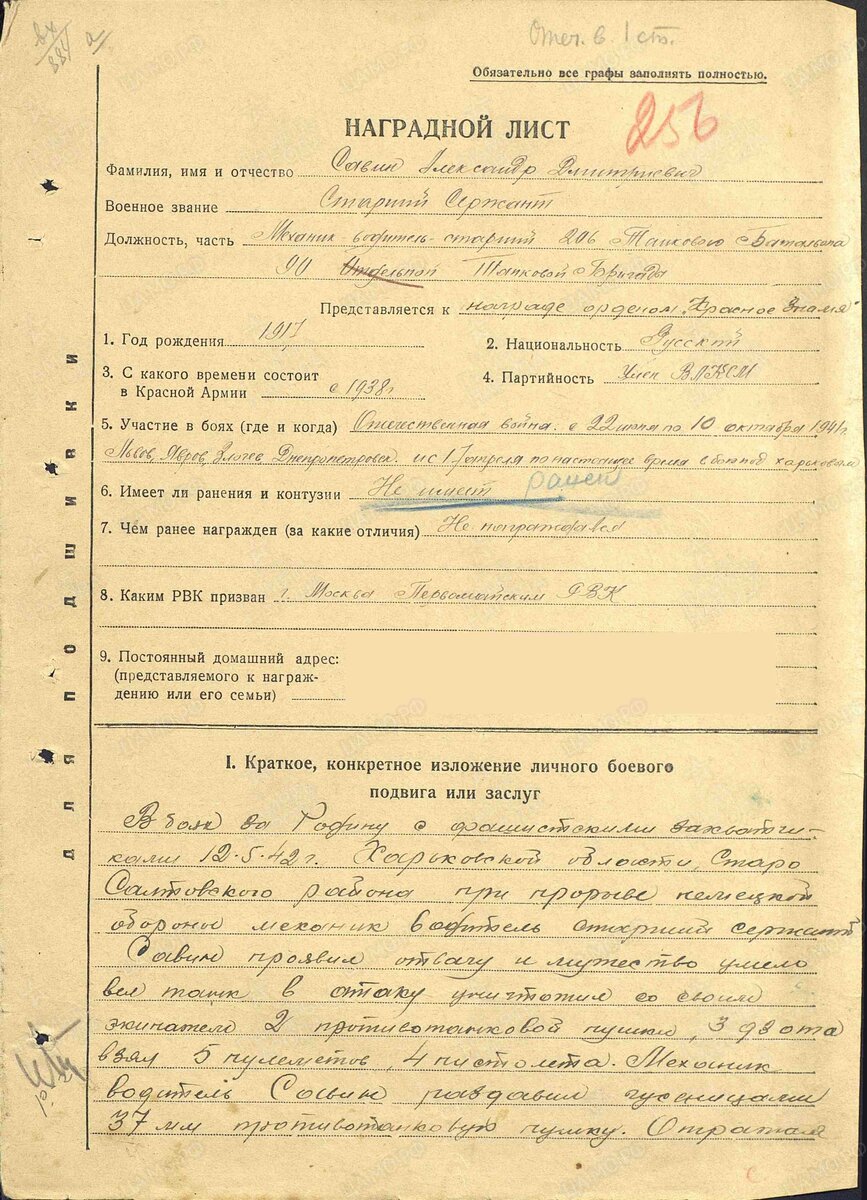 Отеч. в. 1 ст.
вх/884 а/
Обязательно все графы заполнять полностью.
256
НАГРАДНОЙ ЛИСТ
Фамилия, имя и отчество Савин Александр Дмитриевич
Военное звание Старший Сержант
Должность, часть Механик-водитель-старший 206 Танкового Батальона
90 Отдельной Танковой Бригады
Представляется к награде орденом „Красное Знамя"
1. Год рождения 1917
2. Национальность Русский
3. С какого времени состоит
в Красной Армии с 1938г
4. Партийность Член ВЛКСМ
5. Участие в боях (где и когда) Отечественная война. с 22 июня по 10 октября 1941г.
Львов, Явров, Злочев Днепропетровск. и с 17 апреля по настоящее время в боях под харьковым
6. Имеет ли ранения и контузии Не имеет ранен
7. Чем ранее награжден (за какие отличия) Не награждался
8. Каким РВК призван г. Москва Первомайским РВК
9. Постоянный домашний адрес:
(представляемого к награж-
дению или его семьи)
для подшивки
I. Краткое, конкретное изложение личного боевого
подвига или заслуг
В боях за Родину с фашистскими захватчи-
ками 12.5.42г. Харьковской области, Старо
Салтовского района при прорыве немецкой
обороны механик водитель старший сержант
Савин проявил отвагу и мужество умело
вел танк в атаку уничтожил со своим
экипажем 2 противотанковой пушки, 3 дзота
взял 5 пулеметов, 4 пистолета. Механик
водитель Савин раздавил гусеницами
37 мм противотанковую пушку. Отражая
ЦАМО.РФ